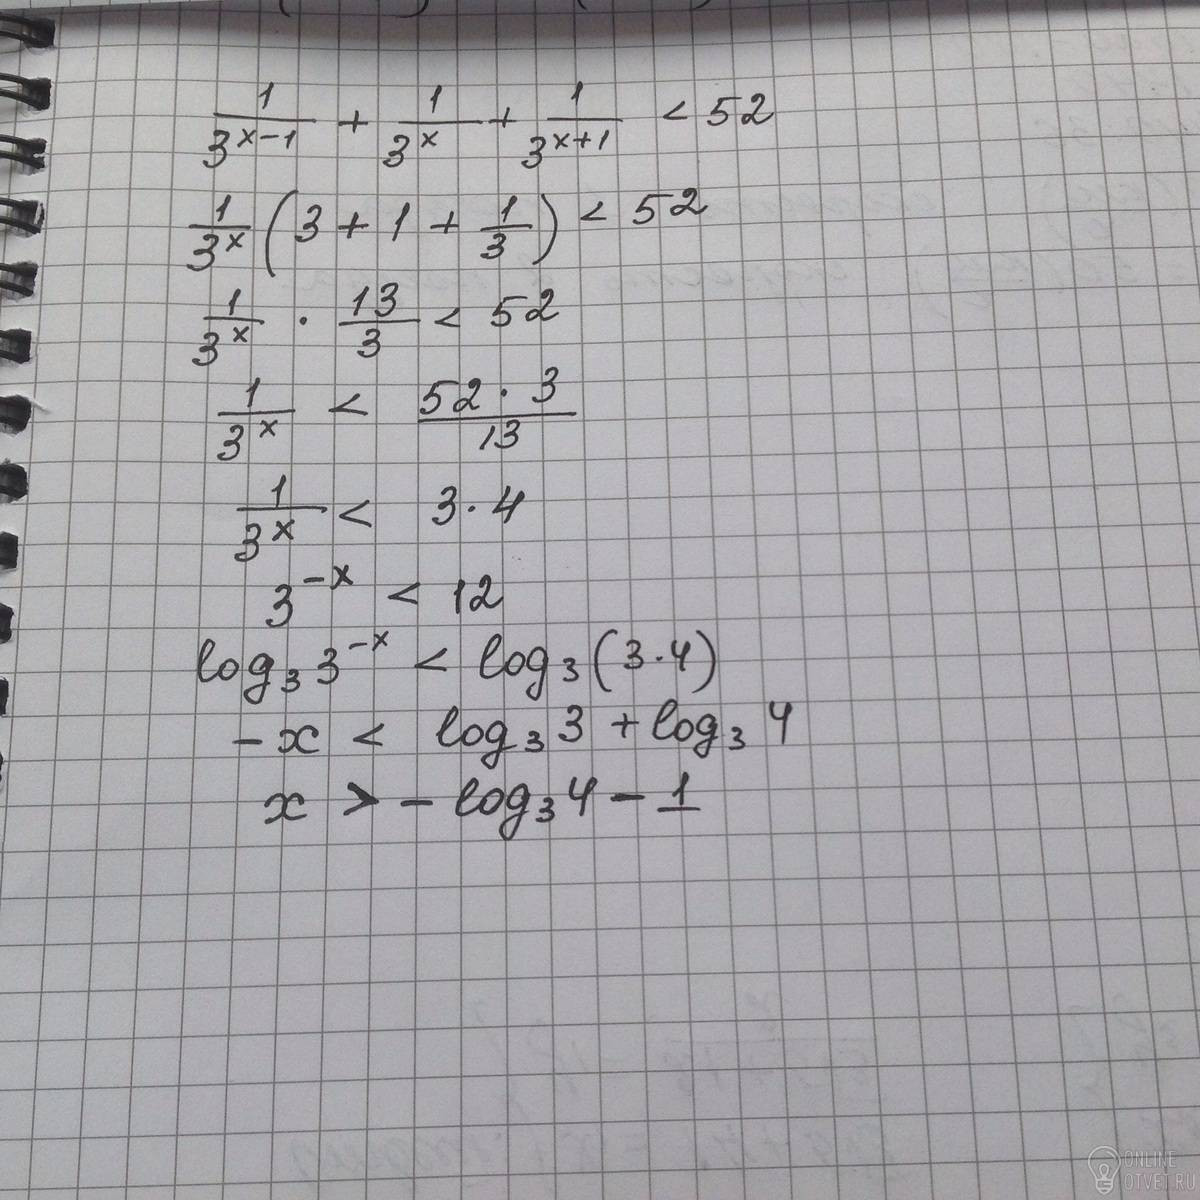 1/3^(x-1) + 1/3^x + 1/3^(x+1) < 52
1/3^x (3 + 1 + 1/3) < 52
1/3^x · 13/3 < 52
1/3^x < 52·3/13
1/3^x < 3·4
3^(-x) < 12
log₃ 3^(-x) < log₃(3·4)
-x < log₃ 3 + log₃ 4
x > - log₃ 4 - 1
ONLINE
OTVET.RU